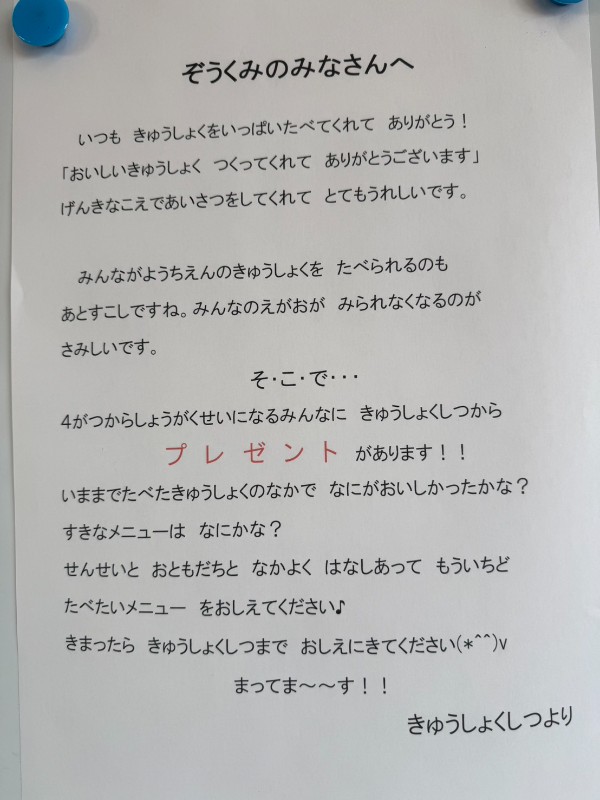 ぞうくみのみなさんへ
いつも きゅうしょくをいっぱいたべてくれて ありがとう！
「おいしいきゅうしょく つくってくれて ありがとうございます」
げんきなこえであいさつをしてくれて とてもうれしいです。
みんながようちえんのきゅうしょくを たべられるのも
あとすこしですね。みんなのえがおが みられなくなるのが
さみしいです。
そ・こ・で・・・
４がつからしょうがくせいになるみんなに きゅうしょくしつから
プレゼント があります！！
いままでたべたきゅうしょくのなかで なにがおいしかったかな？
すきなメニューは なにかな？
せんせいと おともだちと なかよく はなしあって もういちど
たべたいメニュー をおしえてください♪
きまったら きゅうしょくしつまで おしえにきてください(*^^)v
まってま～～す！！
きゅうしょくしつより